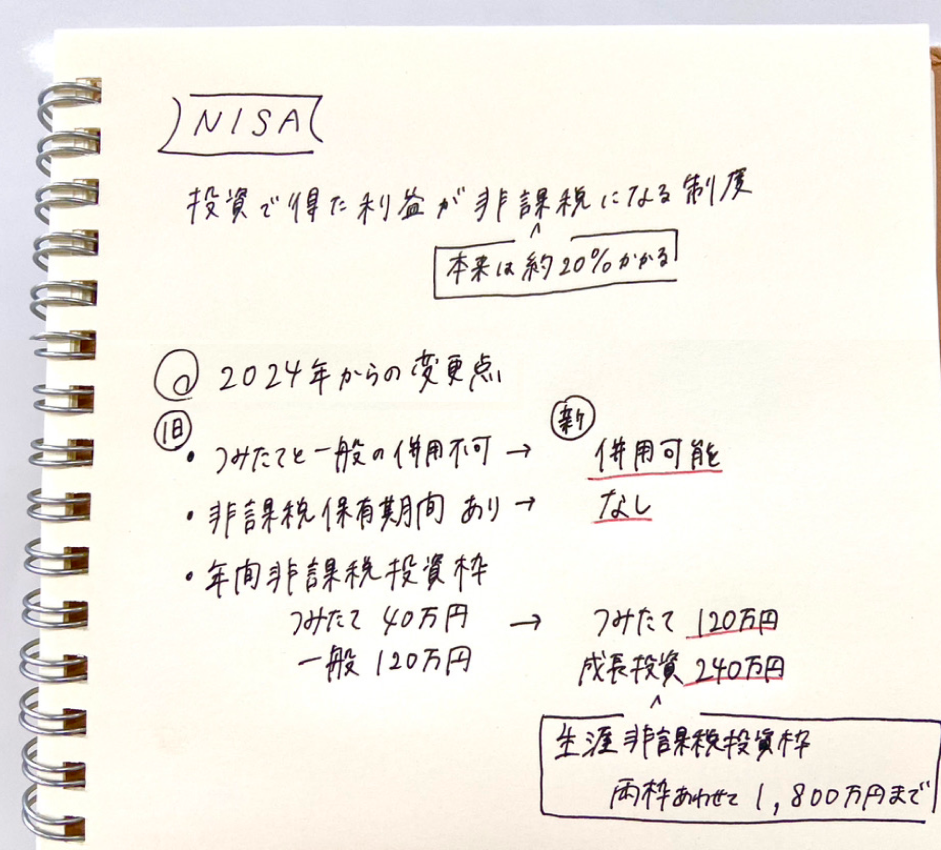 NISA
投資で得た利益が非課税になる制度
本来は約20%かかる
2024年からの変更点
旧 新
・つみたてと一般の併用不可 → 併用可能
・非課税保有期間 あり → なし
・年間非課税投資枠
つみたて 40万円 → つみたて 120万円
一般 120万円 成長投資 240万円
生涯非課税投資枠
両枠あわせて 1,800万円まで